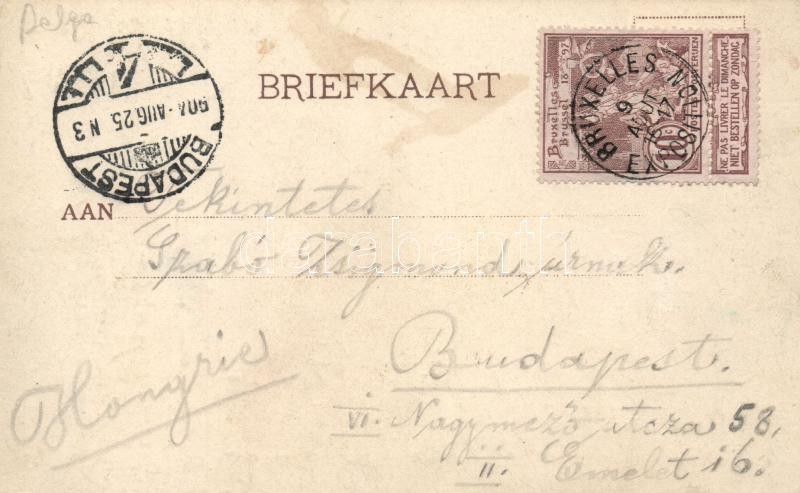 Belga
BRIEFKAART
BUDAPEST
904 - AUG. 25. N 3
BRUXELLES
9
AOUT
Bruxelles 18 97
Brussel
10
NE PAS LIVRER LE DIMANCHE
NIET BESTELLEN OP ZONDAG
AAN Tekintetes
Szabó Zsigmond úrnak.
darabanth
Budapest.
Hongrie
VI. Nagymező utcza 58.
II. Emelet 16.